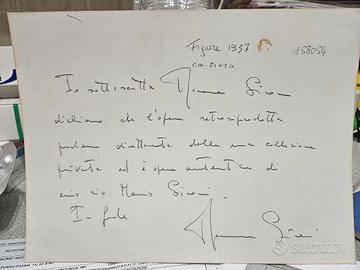 Figure 1937
158054
Io sottoscritta Sironi
dichiaro che l'opera retroriprodotta
proviene direttamente dalla mia collezione
privata ed è opera autentica di
mio zio Mario Sironi.
In fede
Sironi
subito